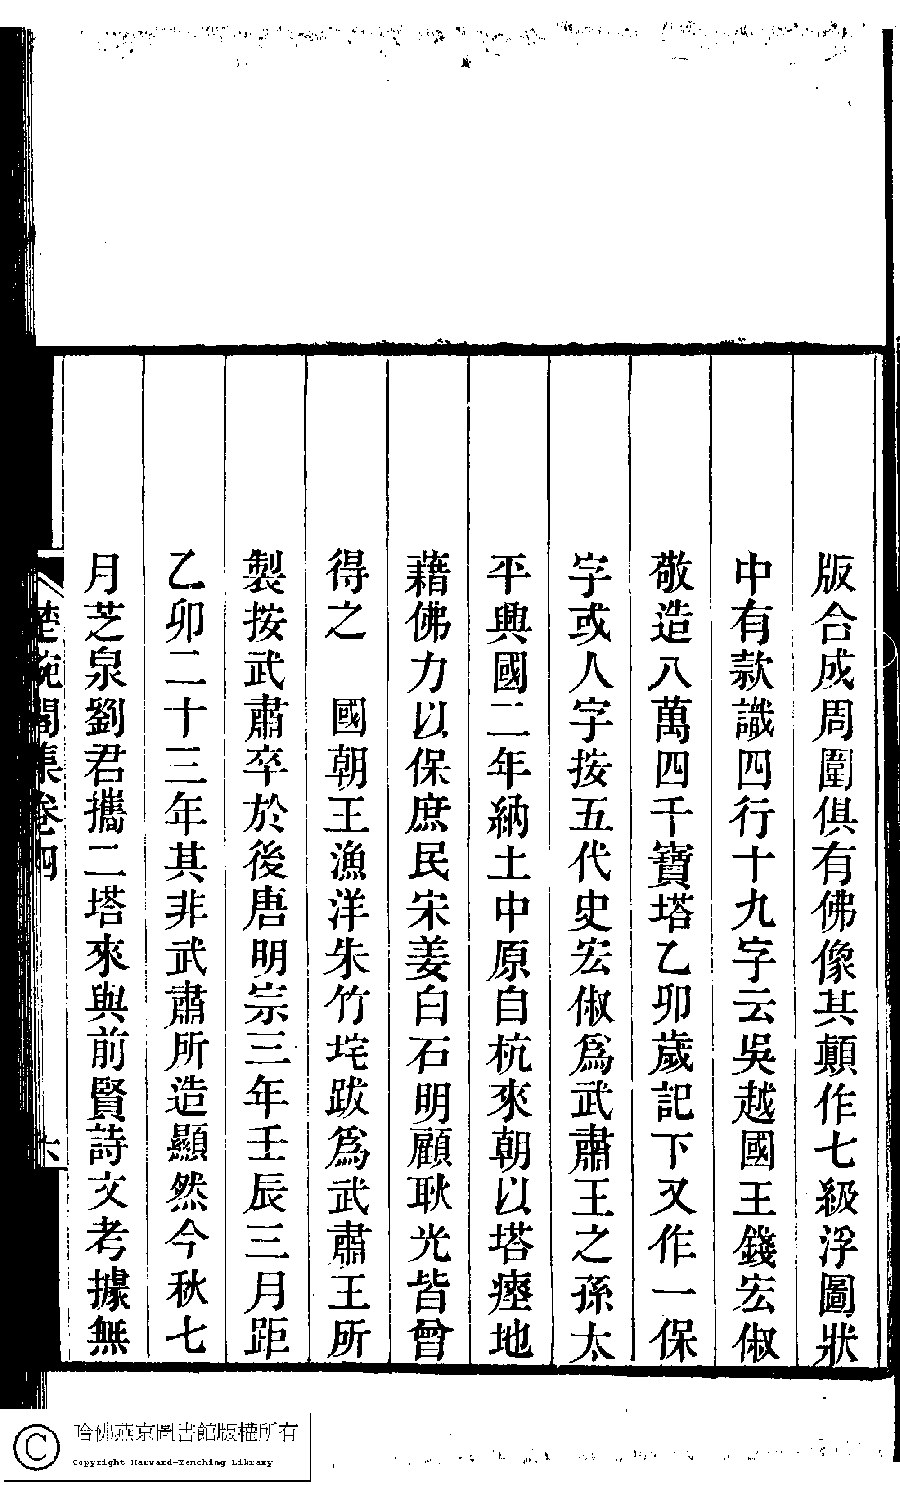 版合成周圍俱有佛像其顛作七級浮圖狀
中有款識四行十九字云吳越國王錢宏俶
敬造八萬四千寶塔乙卯歲記下又作一保
字或人字按五代史宏俶爲武肅王之孫太
平興國二年納土中原自杭來朝以塔瘞地
藉佛力以保庶民宋姜白石明顧耿光皆曾
得之　國朝王漁洋朱竹垞跋爲武肅王所
製按武肅卒於後唐明宗三年壬辰三月距
乙卯二十三年其非武肅所造顯然今秋七
月芝泉劉君攜二塔來與前賢詩文考據無
集卷四
六
哈佛燕京圖書館版權所有
Copyright Harvard-Yenching Library